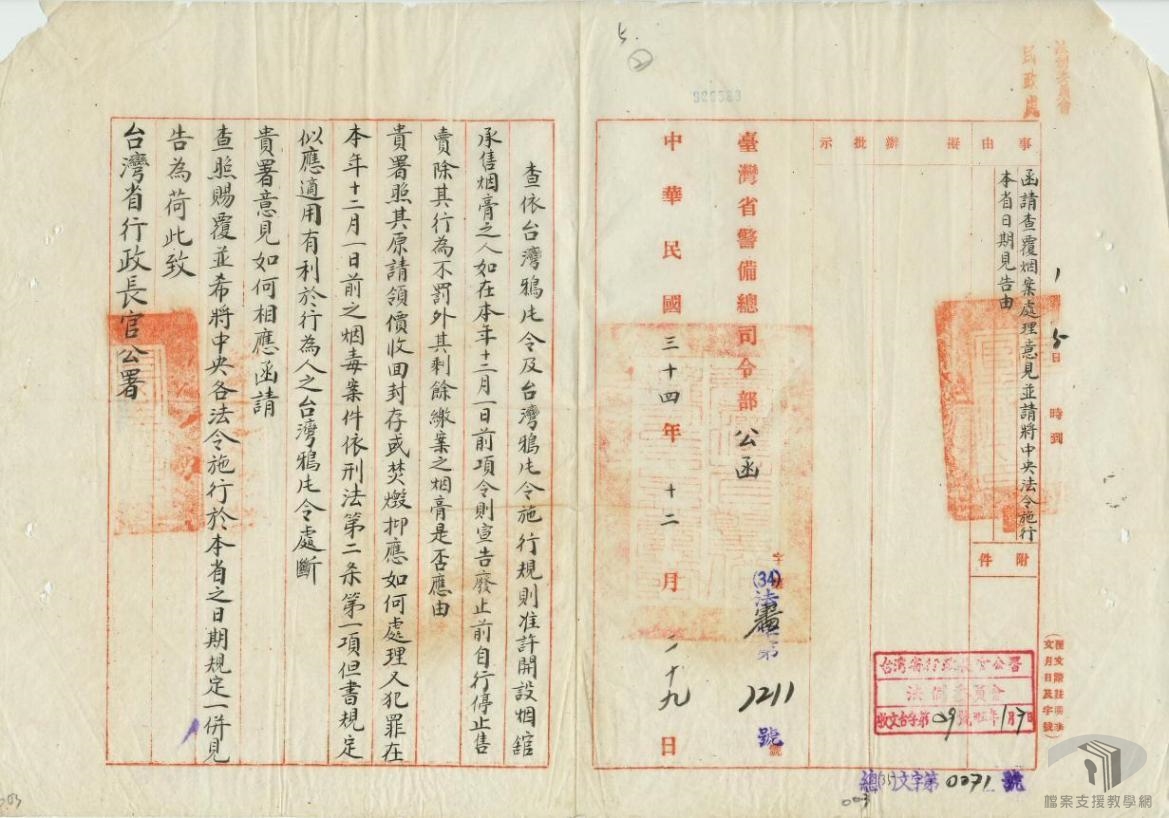 法制委員會
民政處
事由
擬辦
批示
函請查覆烟案處理意見並請將中央法令施行
本省日期見告由
1月5日 時到
附件
臺灣省警備總司令部 公函
(34)法 第1211號
中華民國三十四年十二月 十九日
台灣省行政長官公署
法制委員會
收文台字第09號 年1月7日
總(35)文字第0271號
003
查依台灣鴉片令及台灣鴉片令施行規則准許開設烟館
承售烟膏之人如在本年十二月一日前項令則宣告廢止前自行停止售
賣除其行為不罰外其剩餘繳案之烟膏是否應由
貴署照其原請領價收回封存或焚燬抑應如何處理又犯罪在
本年十二月一日前之烟毒案件依刑法第二条第一項但書規定
似應適用有利於行為人之台灣鴉片令處斷
貴署意見如何相應函請
查照賜覆並希將中央各法令施行於本省之日期規定一併見
告為荷此致
台灣省行政長官公署
檔案支援教學網